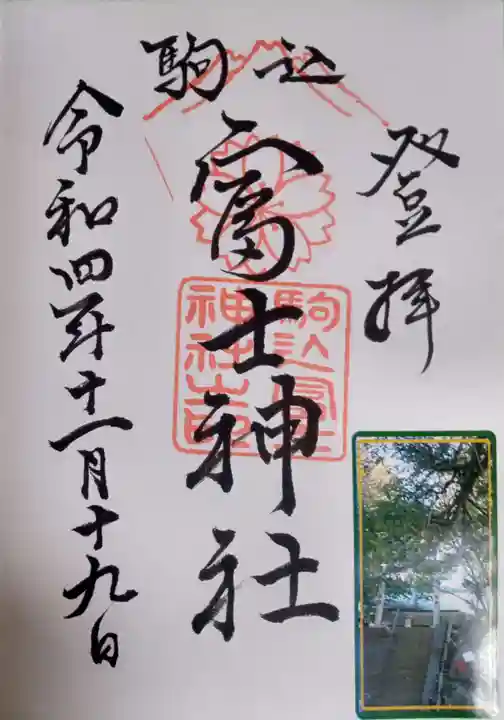 駒込
登拝
富士神社
駒込富士
神社之印
令和四年十一月十九日